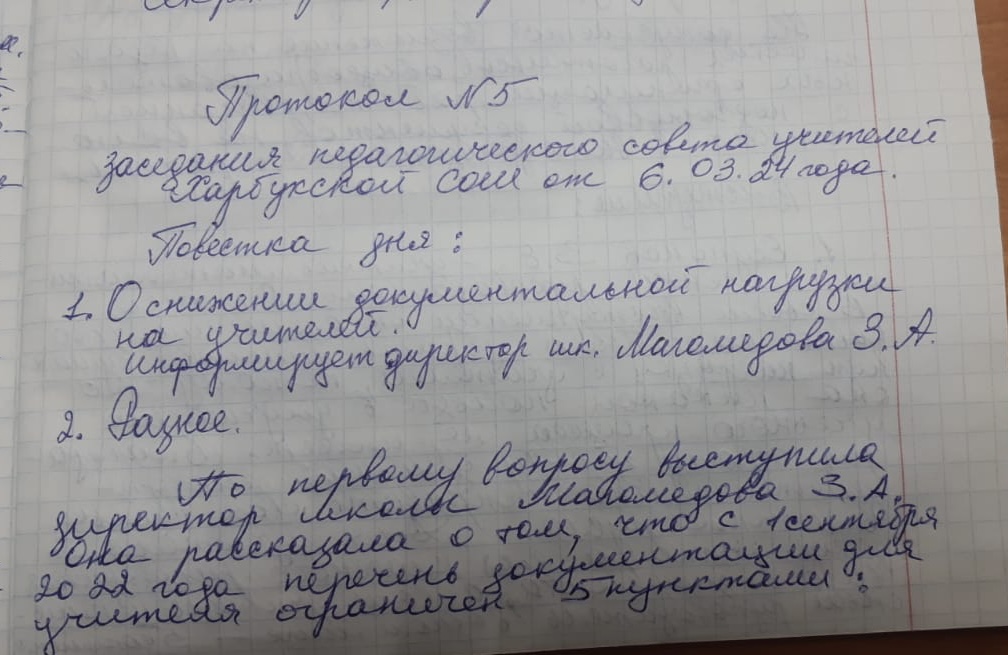 Протокол №5
заседания педагогического совета учителей
Харбукской СОШ от 6.03.24 года.
Повестка дня:
1. О снижении документальной нагрузки
на учителей.
Информирует директор шк. Магомедова З.А.
2. Разное.
По первому вопросу выступила
директор школы Магомедова З.А.
Она рассказала о том, что с 1 сентября
2022 года перечень документации для
учителя ограничен 5 пунктами: